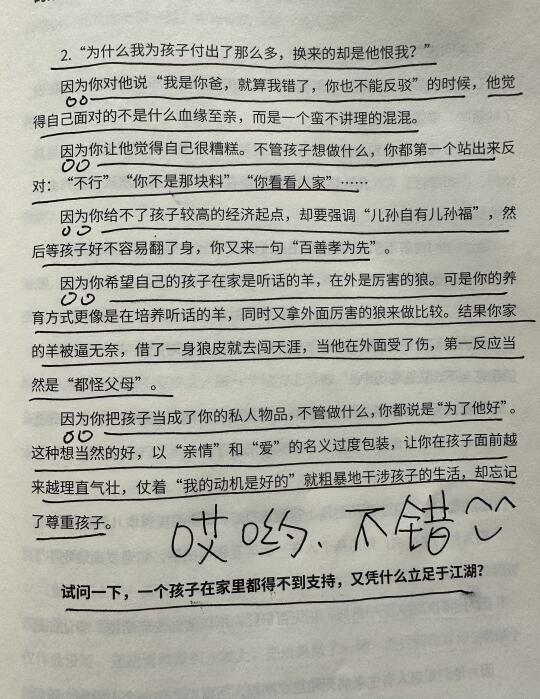 2.“为什么我为孩子付出了那么多，换来的却是他恨我？”
因为你对他说“我是你爸，就算我错了，你也不能反驳”的时候，他觉
得自己面对的不是什么血缘至亲，而是一个蛮不讲理的混混。
因为你让他觉得自己很糟糕。不管孩子想做什么，你都第一个站出来反
对：“不行”“你不是那块料”“你看看人家”……
因为你给不了孩子较高的经济起点，却要强调“儿孙自有儿孙福”，然
后等孩子好不容易翻了身，你又来一句“百善孝为先”。
因为你希望自己的孩子在家是听话的羊，在外是厉害的狼。可是你的养
育方式更像是在培养听话的羊，同时又拿外面厉害的狼来做比较。结果你家
的羊被逼无奈，借了一身狼皮就去闯天涯，当他在外面受了伤，第一反应当
然是“都怪父母”。
因为你把孩子当成了你的私人物品，不管做什么，你都说是“为了他好”。
这种想当然的好，以“亲情”和“爱”的名义过度包装，让你在孩子面前越
来越理直气壮，仗着“我的动机是好的”就粗暴地干涉孩子的生活，却忘记
了尊重孩子。
哎哟、不错
试问一下，一个孩子在家里都得不到支持，又凭什么立足于江湖？